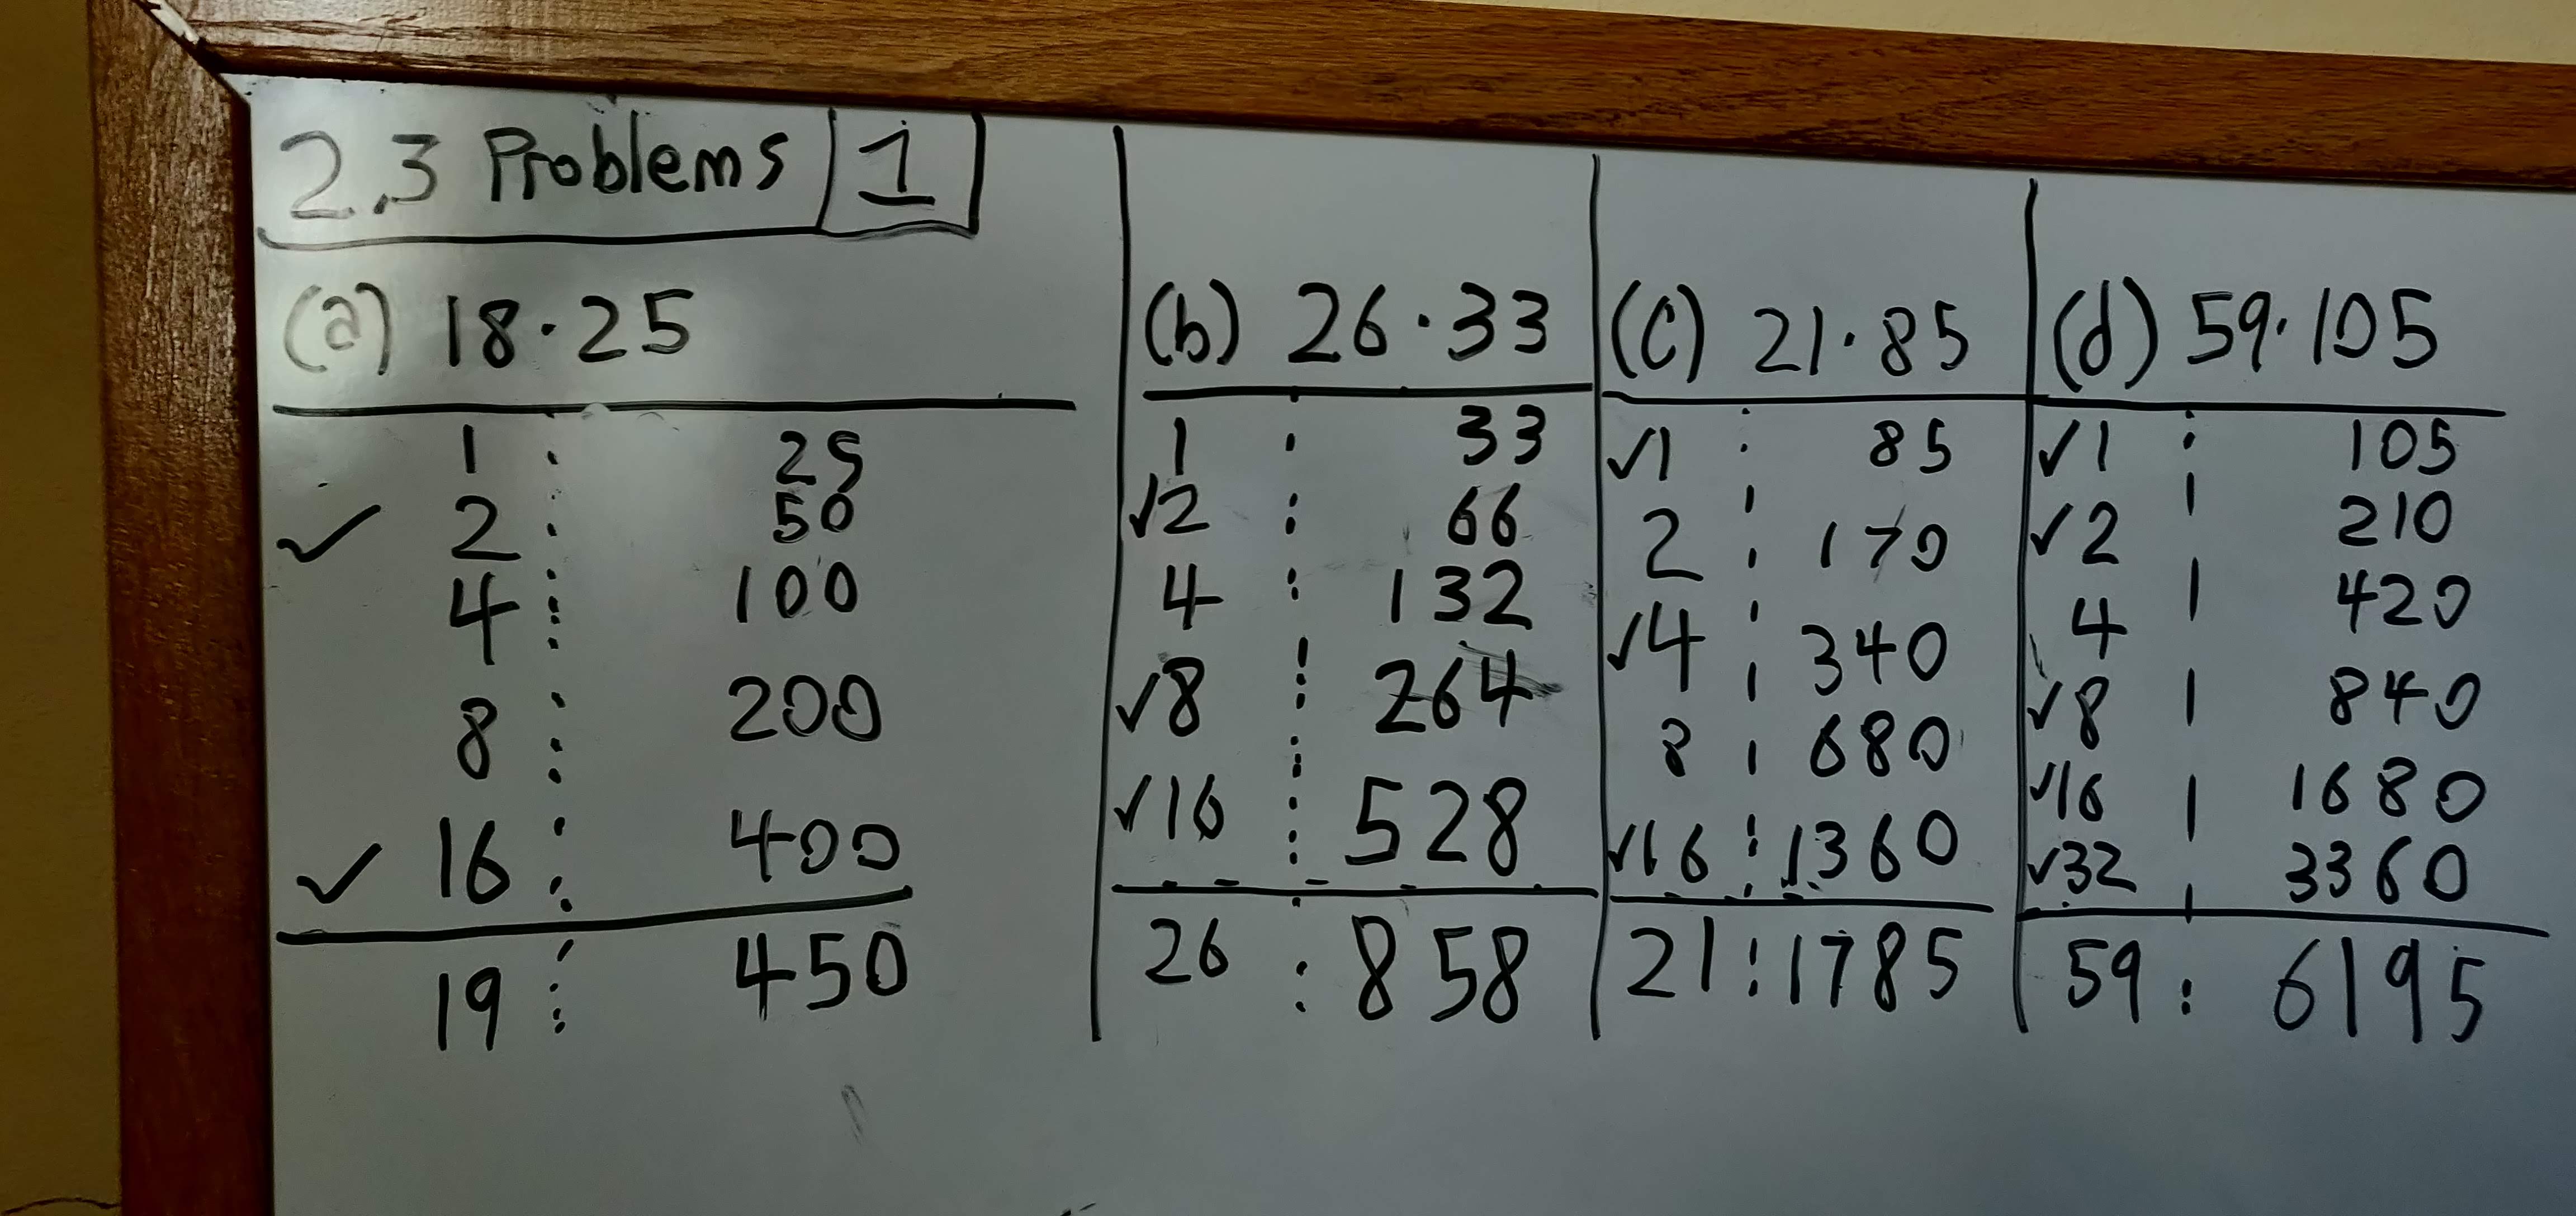 2.3 Problems 1
(a) 18·25
1 : 25
✓ 2 : 50
4 : 100
8 : 200
✓ 16 : 400
19 : 450
(b) 26·33
1 : 33
✓2 : 66
4 : 132
✓8 : 264
✓16 : 528
26 : 858
(c) 21·85
✓1 : 85
2 : 170
✓4 : 340
8 : 680
✓16 : 1360
21 : 1785
(d) 59·105
✓1 : 105
✓2 : 210
4 : 420
✓8 : 840
✓16 : 1680
✓32 : 3360
59 : 6195